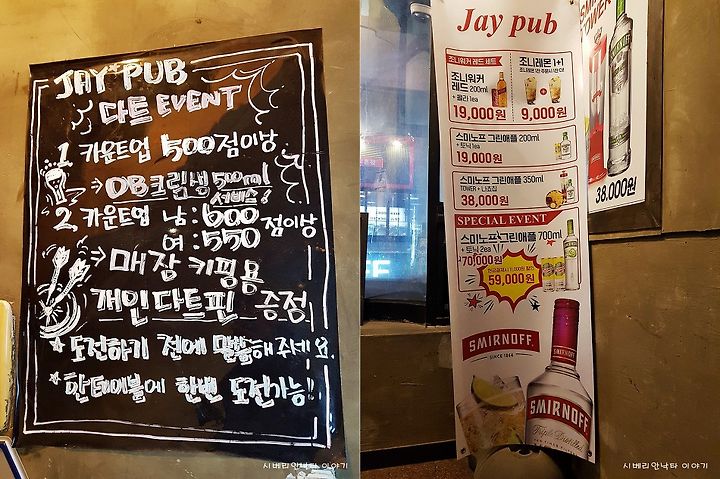 JAY PUB
다트 EVENT
1. 카운트업 500점이상
→ OB크림생 500ml
서비스!
2. 카운트업 남 : 600
여 : 550
점이상
→ 매장 키핑용
개인다트핀 증정
* 도전하기 전에 말씀해주세요
* 한테이블에 한번 도전가능!!
시베리안낙타 이야기
Jay pub
조니워커 레드 세트
조니워커
레드 200ml
+ 콜라 1ea
19,000원
조니레몬 1+1
9,000원
스미노프 그린애플 200ml
+ 토닉 1ea
19,000원
스미노프 그린애플 350ml
TOWER + 나쵸칩
38,000원
SPECIAL EVENT
스미노프 그린애플 700ml
+ 토닉 2ea
70,000원
59,000원
SMIRNOFF
SINCE 1864
SMIRNOFF
Triple Distilled
TOWER
38,000원
시베리안낙타 이야기